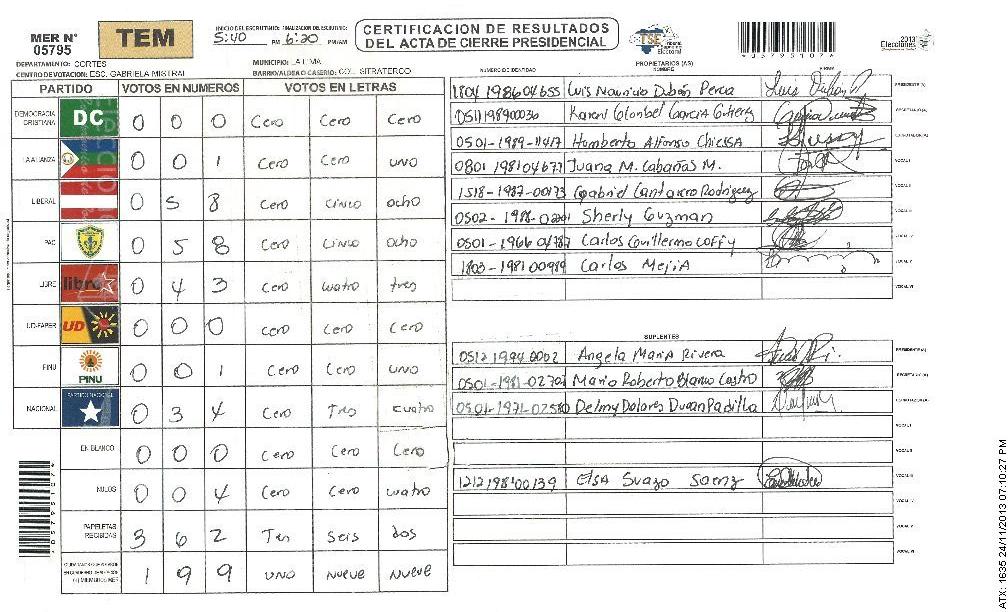 MER Nº
05795
TEM
INICIO DEL ESCRUTINIO: FINALIZACION DE ESCRUTINIO:
5:40 PM 6:20 PM/AM
CERTIFICACION DE RESULTADOS
DEL ACTA DE CIERRE PRESIDENCIAL
TSE
Tribunal Supremo Electoral
2013
Elecciones
DEPARTAMENTO: CORTES
MUNICIPIO: LA LIMA
CENTRO DE VOTACION: ESC. GABRIELA MISTRAL
BARRIO/ALDEA O CASERIO: COL. SITRATERCO
PROPIETARIOS (AS)
NUMERO DE IDENTIDAD NOMBRE FIRMA
PARTIDO VOTOS EN NUMEROS VOTOS EN LETRAS
DEMOCRACIA CRISTIANA DC 0 0 0 Cero Cero Cero
LA ALIANZA 0 0 1 Cero Cero uno
LIBERAL 0 5 8 Cero Cinco ocho
PAC 0 5 8 Cero Cinco ocho
LIBRE libre 0 4 3 Cero cuatro tres
UD-FAPER UD 0 0 0 Cero Cero Cero
PINU PINU 0 0 1 Cero Cero uno
NACIONAL PARTIDO NACIONAL 0 3 4 Cero Tres cuatro
EN BLANCO 0 0 0 Cero Cero Cero
NULOS 0 0 4 Cero Cero cuatro
PAPELETAS RECIBIDAS 3 6 2 Tres seis dos
1 9 9 uno nueve nueve
1804 198604655 Luis Mauricio Dubón Perea PRESIDENTE (A)
0511198900036 Karen Clonibel Garcia Gutierrez SECRETARIO (A)
0501-1989-11417 Humberto Alfonso Chiessa ESCRUTADOR (A)
0801 198104677 Juana M. Cabañas M. VOCAL I
1518-1987-00173 Gabriel Cantarero Rodriguez VOCAL II
0502-1988-02201 Sherly Guzman VOCAL III
0501-1966 04787 Carlos Guillermo Coffy VOCAL IV
1803-1981 00989 Carlos Mejia VOCAL V
VOCAL VI
SUPLENTES
0512 1994 0002 Angela Maria Rivera PRESIDENTE (A)
0501-1981-02702 Mario Roberto Blanco Castro SECRETARIO (A)
0501-1971-02580 Delmy Dolores Duran Padilla ESCRUTADOR (A)
VOCAL I
VOCAL II
1212 1981 00139 Elsa Suazo Saenz VOCAL III
VOCAL IV
VOCAL V
VOCAL VI
ATX: 1635 24/11/2013 07:10:27 PM